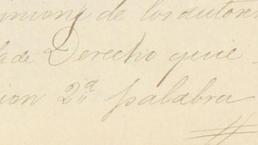 de los autores
de Derecho que
ion 2ª palabra